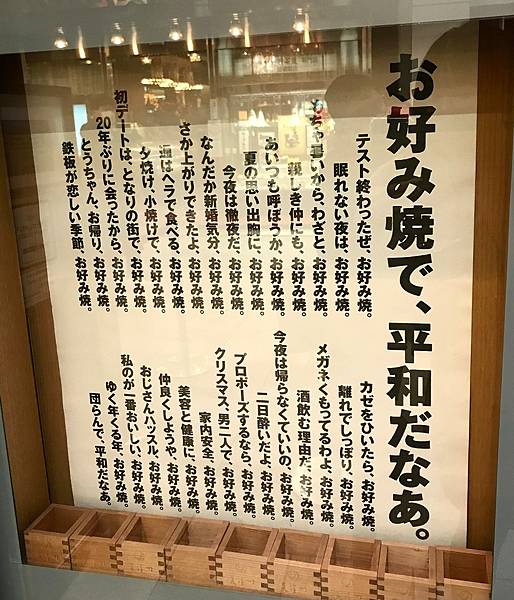 お好み焼で、平和だなあ。
テスト終わったぜ、お好み焼。
眠れない夜は、お好み焼。
ちゃ暑いから、わざと、お好み焼。
親しき仲にも、お好み焼。
あいつも呼ぼうか、お好み焼。
夏の思い出胸に、お好み焼。
今夜は徹夜だ、お好み焼。
なんだか新婚気分、お好み焼。
さか上がりできたよ、お好み焼。
通はヘラで食べる、お好み焼。
夕焼け、小焼けで、お好み焼。
初デートは、となりの街で、お好み焼。
20年ぶりに会ったから、お好み焼。
とうちゃん、お帰り、お好み焼。
鉄板が恋しい季節、お好み焼。
カゼをひいたら、お好み焼。
離れでしっぽり、お好み焼。
メガネくもってるわよ、お好み焼。
酒飲む理由だ、お好み焼。
今夜は帰らなくていいの、お好み焼。
二日酔いだよ、お好み焼。
プロポーズするなら、お好み焼。
クリスマス、男二人で、お好み焼。
家内安全、お好み焼。
美容と健康に、お好み焼。
仲良くしようや、お好み焼。
おじさんハッスル、お好み焼。
私のが一番おいしい、お好み焼。
ゆく年くる年、お好み焼。
団らんで、平和だなあ。